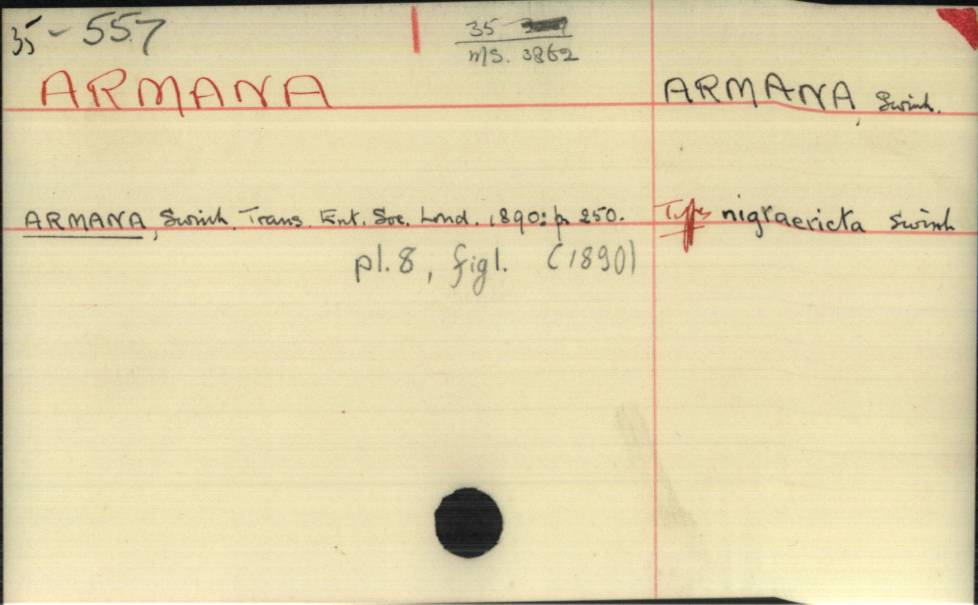 35-557
35
MS. 3862
ARMANA
ARMANA, Swinh.
ARMANA, Swinh. Trans. Ent. Soc. Lond. 1890: p. 250.
Type nigraericta Swinh
pl. 8, fig 1. (1890)